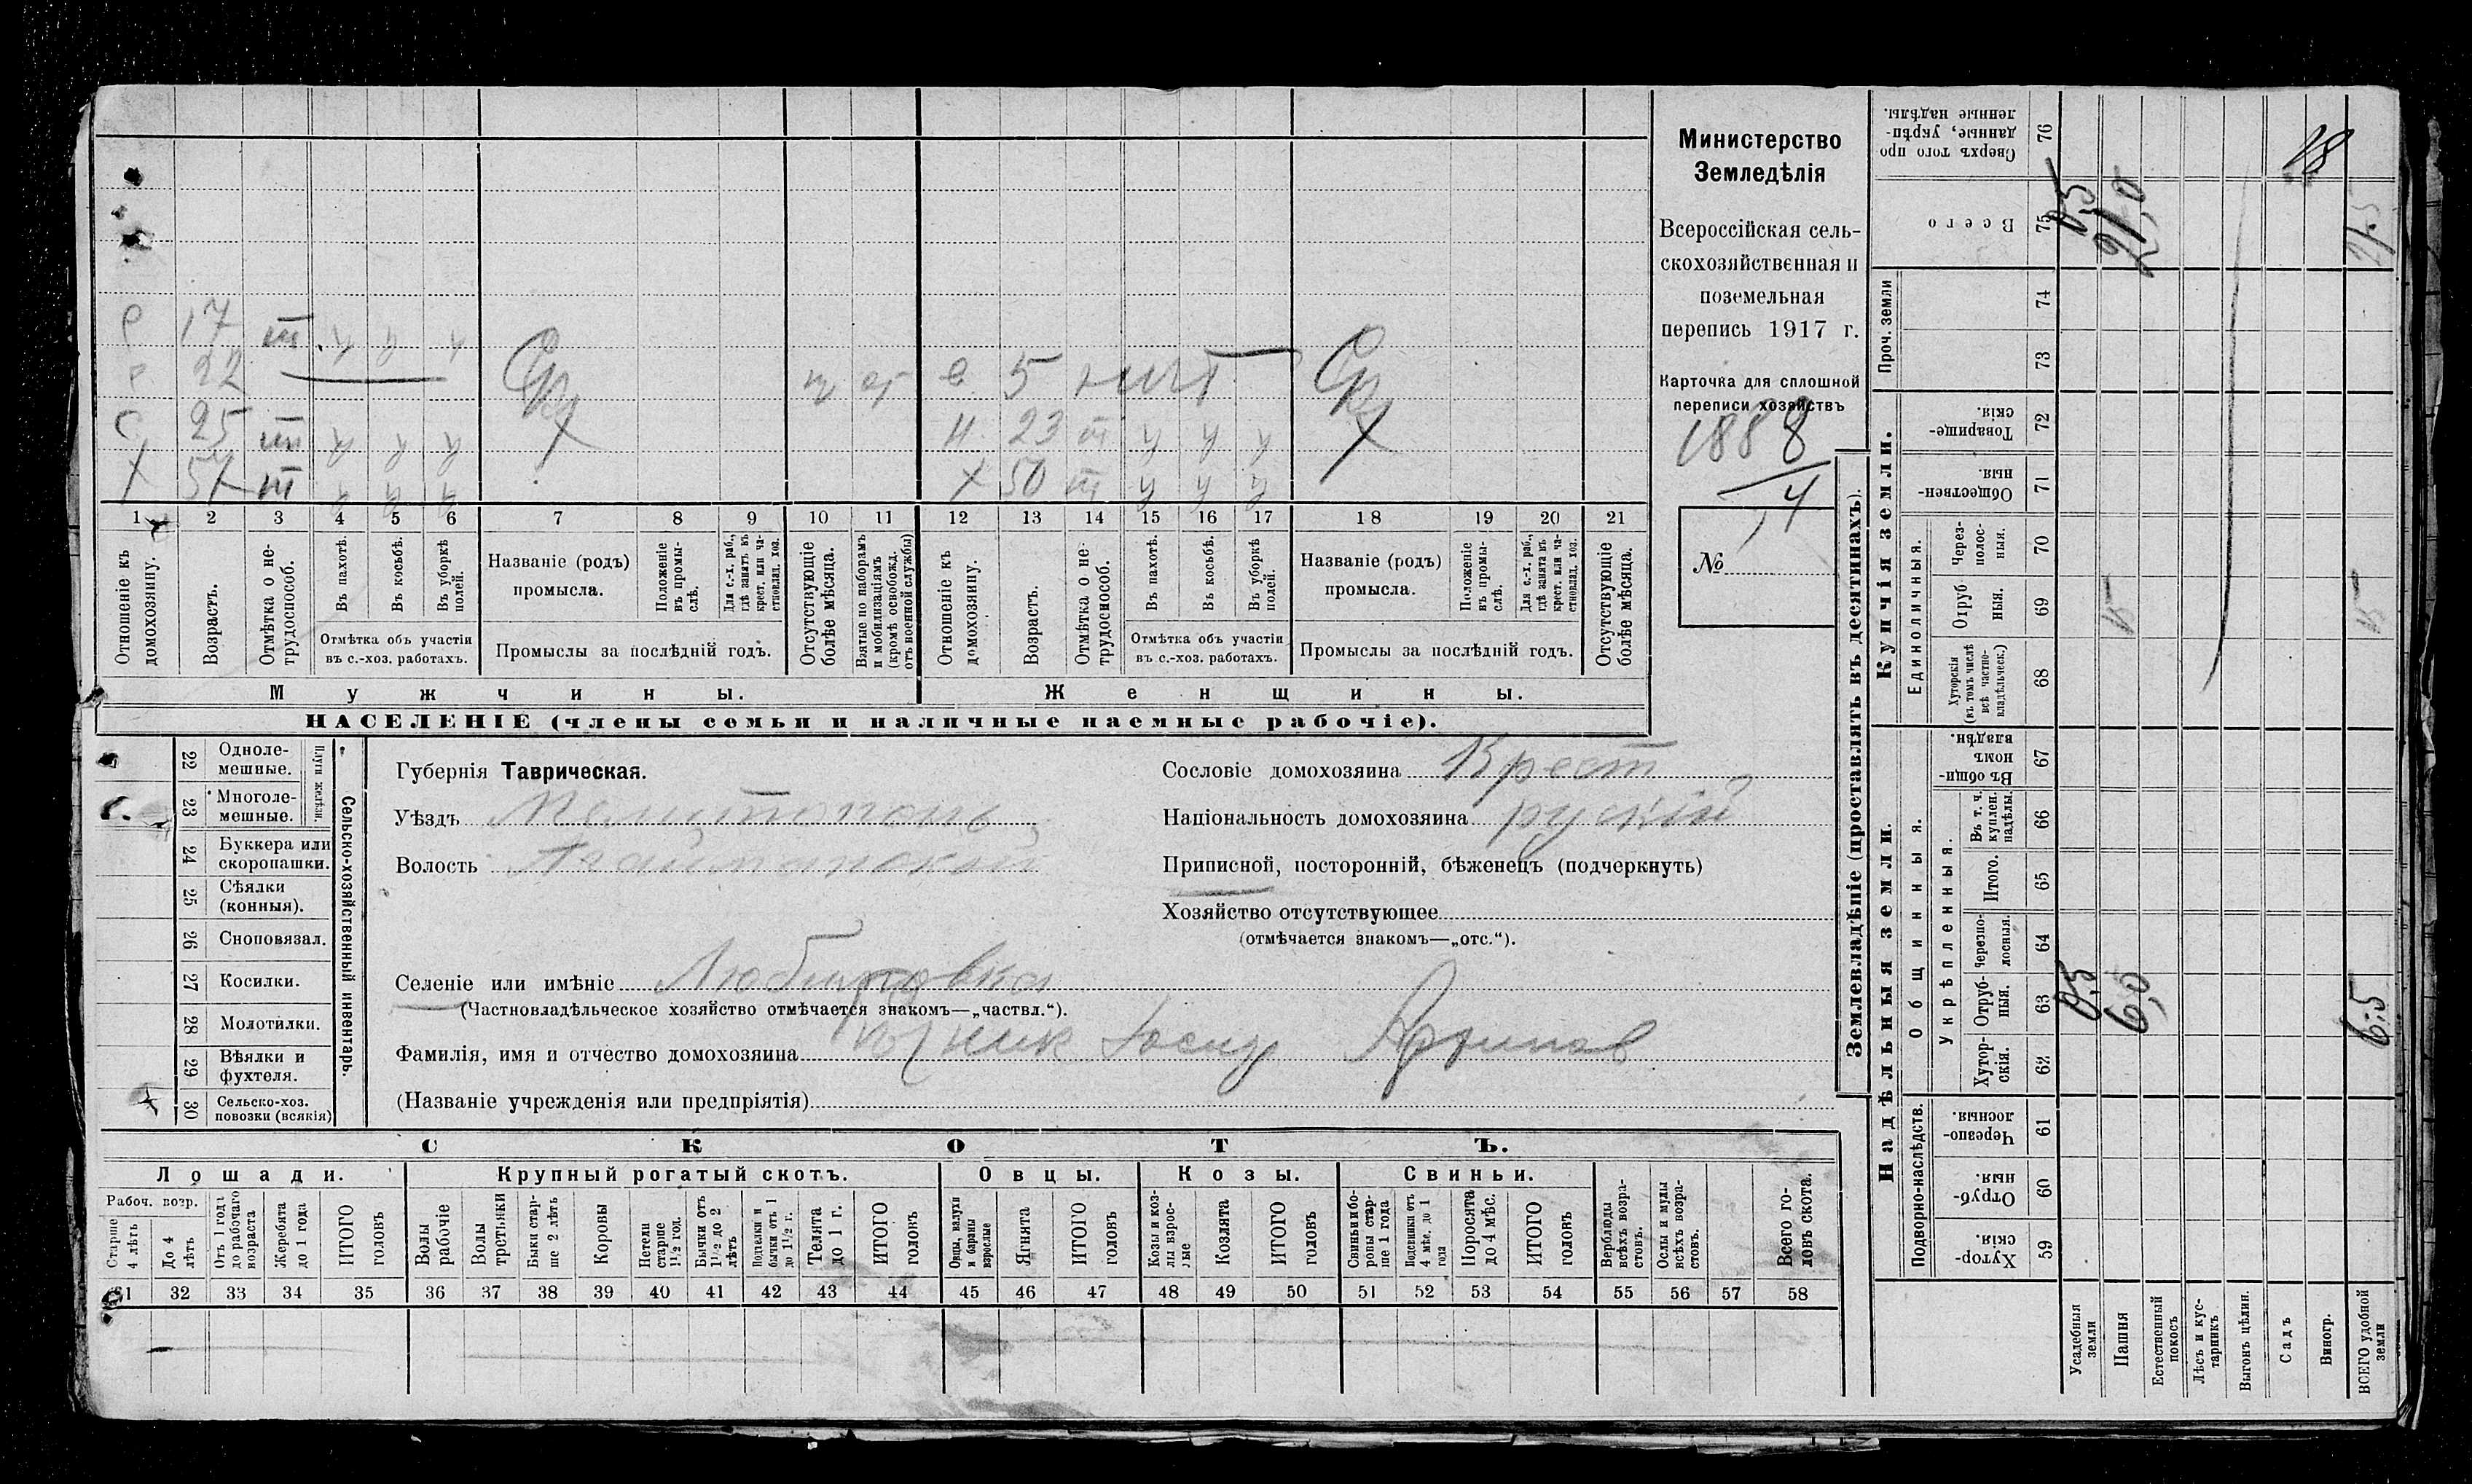 Министерство
Земледѣлія
Всероссійская сель-
скохозяйственная и
поземельная
перепись 1917 г.
Карточка для сплошной
переписи хозяйствъ
1888
14
№
С 17 ш у у у
С 22
С 25 ш у у у
Х 57 ш у у у
5 нит
Н 23 ш у у у
Х 50 ш у у у
1 2 3 4 5 6 7 8 9 10 11 12 13 14 15 16 17 18 19 20 21
Отношеніе къ домохозяину.
Возрастъ.
Отмѣтка о не-трудоспособ.
Въ пахотѣ.
Въ косьбѣ.
Въ уборкѣ полей.
Отмѣтка объ участіи
въ с.-хоз. работахъ.
Названіе (родъ)
промысла.
Положеніе въ промы-слѣ.
Для с.-х. раб., гдѣ занятъ въ крест. или ча-стновлад. хоз.
Промыслы за послѣдній годъ.
Отсутствующіе болѣе мѣсяца.
Взятые по наборамъ и мобилизаціямъ (кромѣ освобожд. отъ военной службы)
Отношеніе къ домохозяину.
Возрастъ.
Отмѣтка о не-трудоспособ.
Въ пахотѣ.
Въ косьбѣ.
Въ уборкѣ полей.
Отмѣтка объ участіи
въ с.-хоз. работахъ.
Названіе (родъ)
промысла.
Положеніе въ промы-слѣ.
Для с.-х. раб., гдѣ занята въ крест. или ча-стновлад. хоз.
Промыслы за послѣдній годъ.
Отсутствующіе болѣе мѣсяца.
Мужчины.
Женщины.
НАСЕЛЕНІЕ (члены семьи и наличные наемные рабочіе).
Сельско-хозяйственный инвентарь.
Плуги желѣзн.
22 Одноле-
мешные.
23 Многоле-
мешные.
24 Буккера или
скоропашки.
25 Сѣялки
(конныя).
26 Сноповязал.
27 Косилки.
28 Молотилки.
29 Вѣялки и
фухтеля.
30 Сельско-хоз.
повозки (всякія)
Губернія Таврическая.
Уѣздъ Мелитополь
Волость Агайманской
Селеніе или имѣніе Любимовка
(Частновладѣльческое хозяйство отмѣчается знакомъ—„частвл.“).
Фамилія, имя и отчество домохозяина
(Названіе учрежденія или предпріятія)
Сословіе домохозяина Крест
Національность домохозяина рускій
Приписной, посторонній, бѣженецъ (подчеркнуть)
Хозяйство отсутствующее
(отмѣчается знакомъ—„отс.“).
СКОТЪ.
Лошади.
Крупный рогатый скотъ.
Овцы.
Козы.
Свиньи.
Рабоч. возр.
Старше 4 лѣтъ
До 4 лѣтъ
Отъ 1 года до рабочаго возраста
Жеребята до 1 года
ИТОГО головъ
Волы рабочіе
Волы третьяки
Быки стар-ше 2 лѣтъ
Коровы
Нетели старше 1½ год.
Бычки отъ 1½ до 2 лѣтъ
Подтелки и бычки отъ 1 до 1½ г.
Телята до 1 г.
ИТОГО головъ
Овцы, валухи и бараны взрослые
Ягнята
ИТОГО головъ
Козы и коз-лы взрос-лые
Козлята
ИТОГО головъ
Свиньи и бо-ровы стар-ше 1 года
Подсвинки отъ 4 мѣс. до 1 года
Поросята до 4 мѣс.
ИТОГО головъ
Верблюды всѣхъ возра-стовъ.
Ослы и мулы всѣхъ возра-стовъ.
Всего го-ловъ скота.
31 32 33 34 35 36 37 38 39 40 41 42 43 44 45 46 47 48 49 50 51 52 53 54 55 56 57 58
Землевладѣніе (проставлять въ десятинахъ).
Надѣльныя земли.
Купчія земли.
Проч. земли
Подворно-наслѣдств.
Общинныя.
Укрѣпленныя.
Единоличныя.
Хутор-скія. 59
Отруб-ныя. 60
Черезпо-лосныя. 61
Хутор-скія. 62
Отруб-ныя. 63
Черезпо-лосныя. 64
Итого. 65
Въ т. ч. куплен. надѣлы. 66
Въ общи-номъ владѣн. 67
Хуторскія (въ томъ числѣ всѣ частно-владѣльческ.) 68
Отруб ныя. 69
Через-полос-ныя. 70
Обществен-ныя. 71
Товарище-скія. 72
73
74
Всего 75
Сверхъ того про данные, укрѣп-ленные надѣлы. 76
Усадебныя земли 0,5 0,5
Пашня 6,0 15 21,0
Естественный покосъ
Лѣсъ и кус-тарникъ
Выгонъ цѣлин.
Садъ
Виногр.
ВСЕГО удобной земли 6.5 15 21.5
18